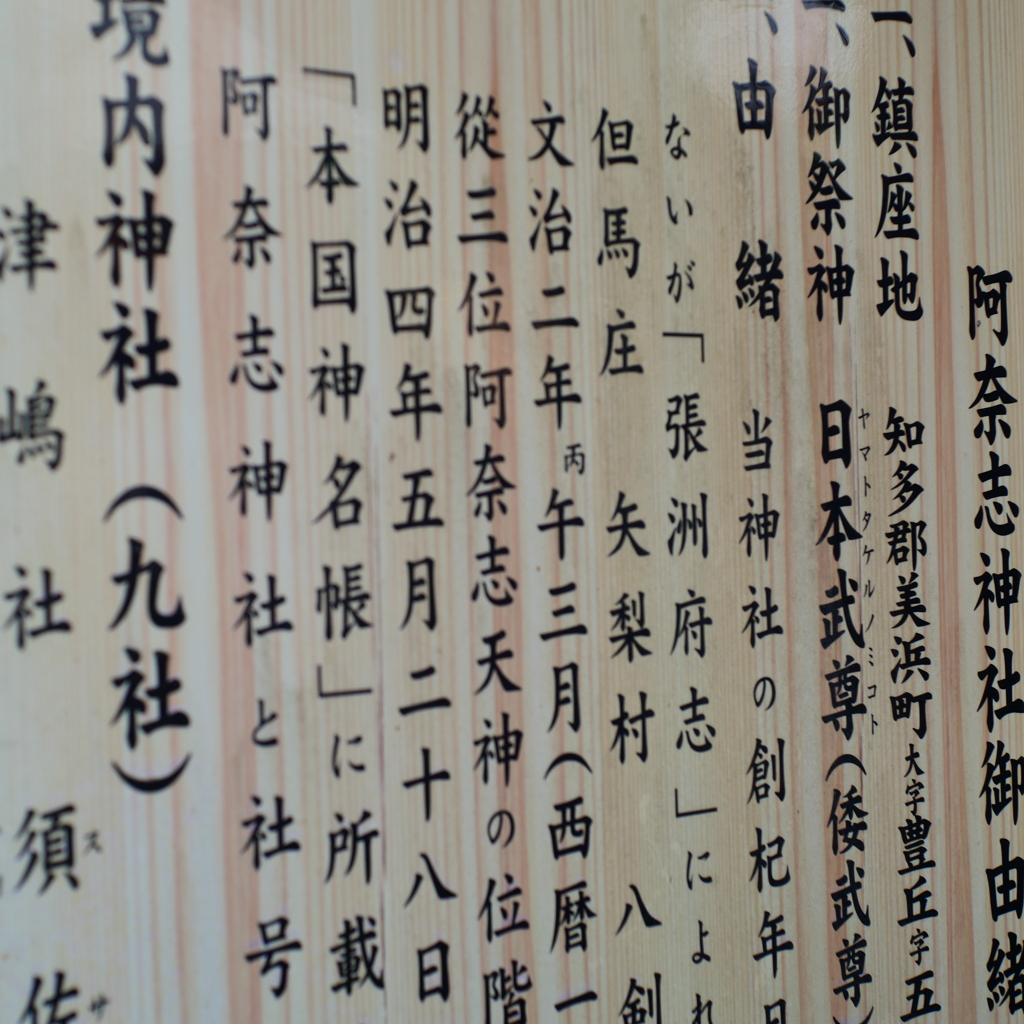 阿奈志神社御由緒
一、鎮座地 知多郡美浜町大字豊丘字五
一、御祭神 日本武尊(倭武尊)
ヤマトタケルノミコト
、由緒 当神社の創杞年
ないが「張洲府志」によれ
但馬庄 矢梨村 八剣
文治二年丙午三月(西暦一
從三位阿奈志天神の位階
明治四年五月二十八日
「本国神名帳」に所載
阿奈志神社と社号
境内神社(九社)
津嶋社 須佐
スサ